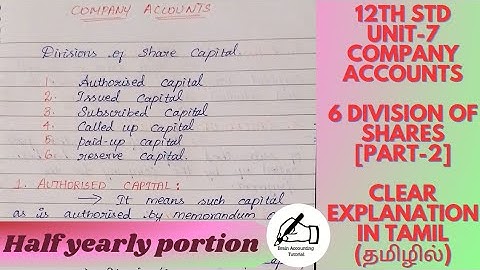 COMPANY ACCOUNTS
Divisions of Share Capital.
1. Authorised capital
2. Issued capital
3. Subscribed capital
4. Called up capital
5. paid-up capital
6. reserve capital.
1. AUTHORISED CAPITAL:
→ It means such capital
as is authorised by memorandum
Half yearly portion
Brain Accounting
Tutorial
12TH STD
UNIT-7
COMPANY
ACCOUNTS
6 DIVISION OF
SHARES
[PART-2]
CLEAR
EXPLANATION
IN TAMIL
(தமிழில்)